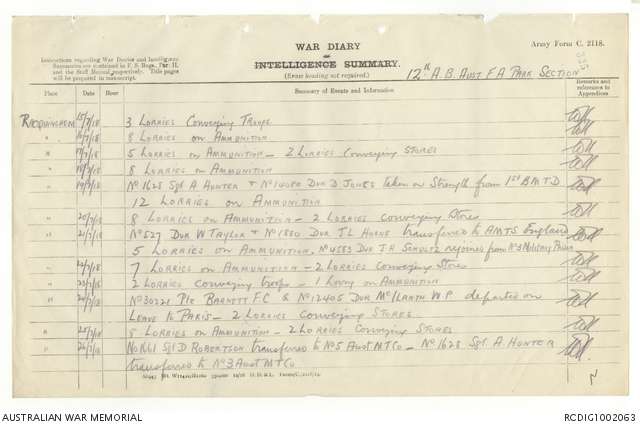 WAR DIARY
or
INTELLIGENCE SUMMARY.
(Erase heading not required.)
Army Form C. 2118.
Instructions regarding War Diaries and Intelligence
Summaries are contained in F. S. Regs., Part II.
and the Staff Manual respectively. Title pages
will be prepared in manuscript.
12th A.B. Aust F A Park Section
Place Date Hour Summary of Events and Information Remarks and references to Appendices
Racquinghem 15/7/18 3 Lorries Conveying Troops
" 16/7/18 8 Lorries on Ammunition
" 17/7/18 5 Lorries on Ammunition - 2 Lorries Conveying Stores
" 18/7/18 8 Lorries on Ammunition
" 19/7/18 No 1628 Sgt A Hunter & No 14080 Dvr D Jones taken on Strength from 1st B.M.T.D.
12 Lorries on Ammunition
" 20/7/18 8 Lorries on Ammunition - 2 Lorries conveying Stores
" 21/7/18 No 527 Dvr W Taylor & No 1880 Dvr T L Horne transferred to AMTS England
5 Lorries on Ammunition, No 4583 Dvr J H Schultz rejoined from No 3 Military Prison
" 22/7/18 7 Lorries on Ammunition - 2 Lorries conveying Stores
" 23/7/18 2 Lorries conveying troops - 1 Lorry on Ammunition
" 24/7/18 No 30221 Pte Barnett F C & No 12405 Dvr McIlrath W P departed on
Leave to Paris - 2 Lorries Conveying Stores
" 25/7/18 8 Lorries on Ammunition - 2 Lorries Conveying Stores
" 26/7/18 No 1661 Sgt D Robertson transferred to No 5 Aust M T Co - No 1628 Sgt A Hunter
transferred to No 3 Aust M T Co
AUSTRALIAN WAR MEMORIAL
RCDIG1002063